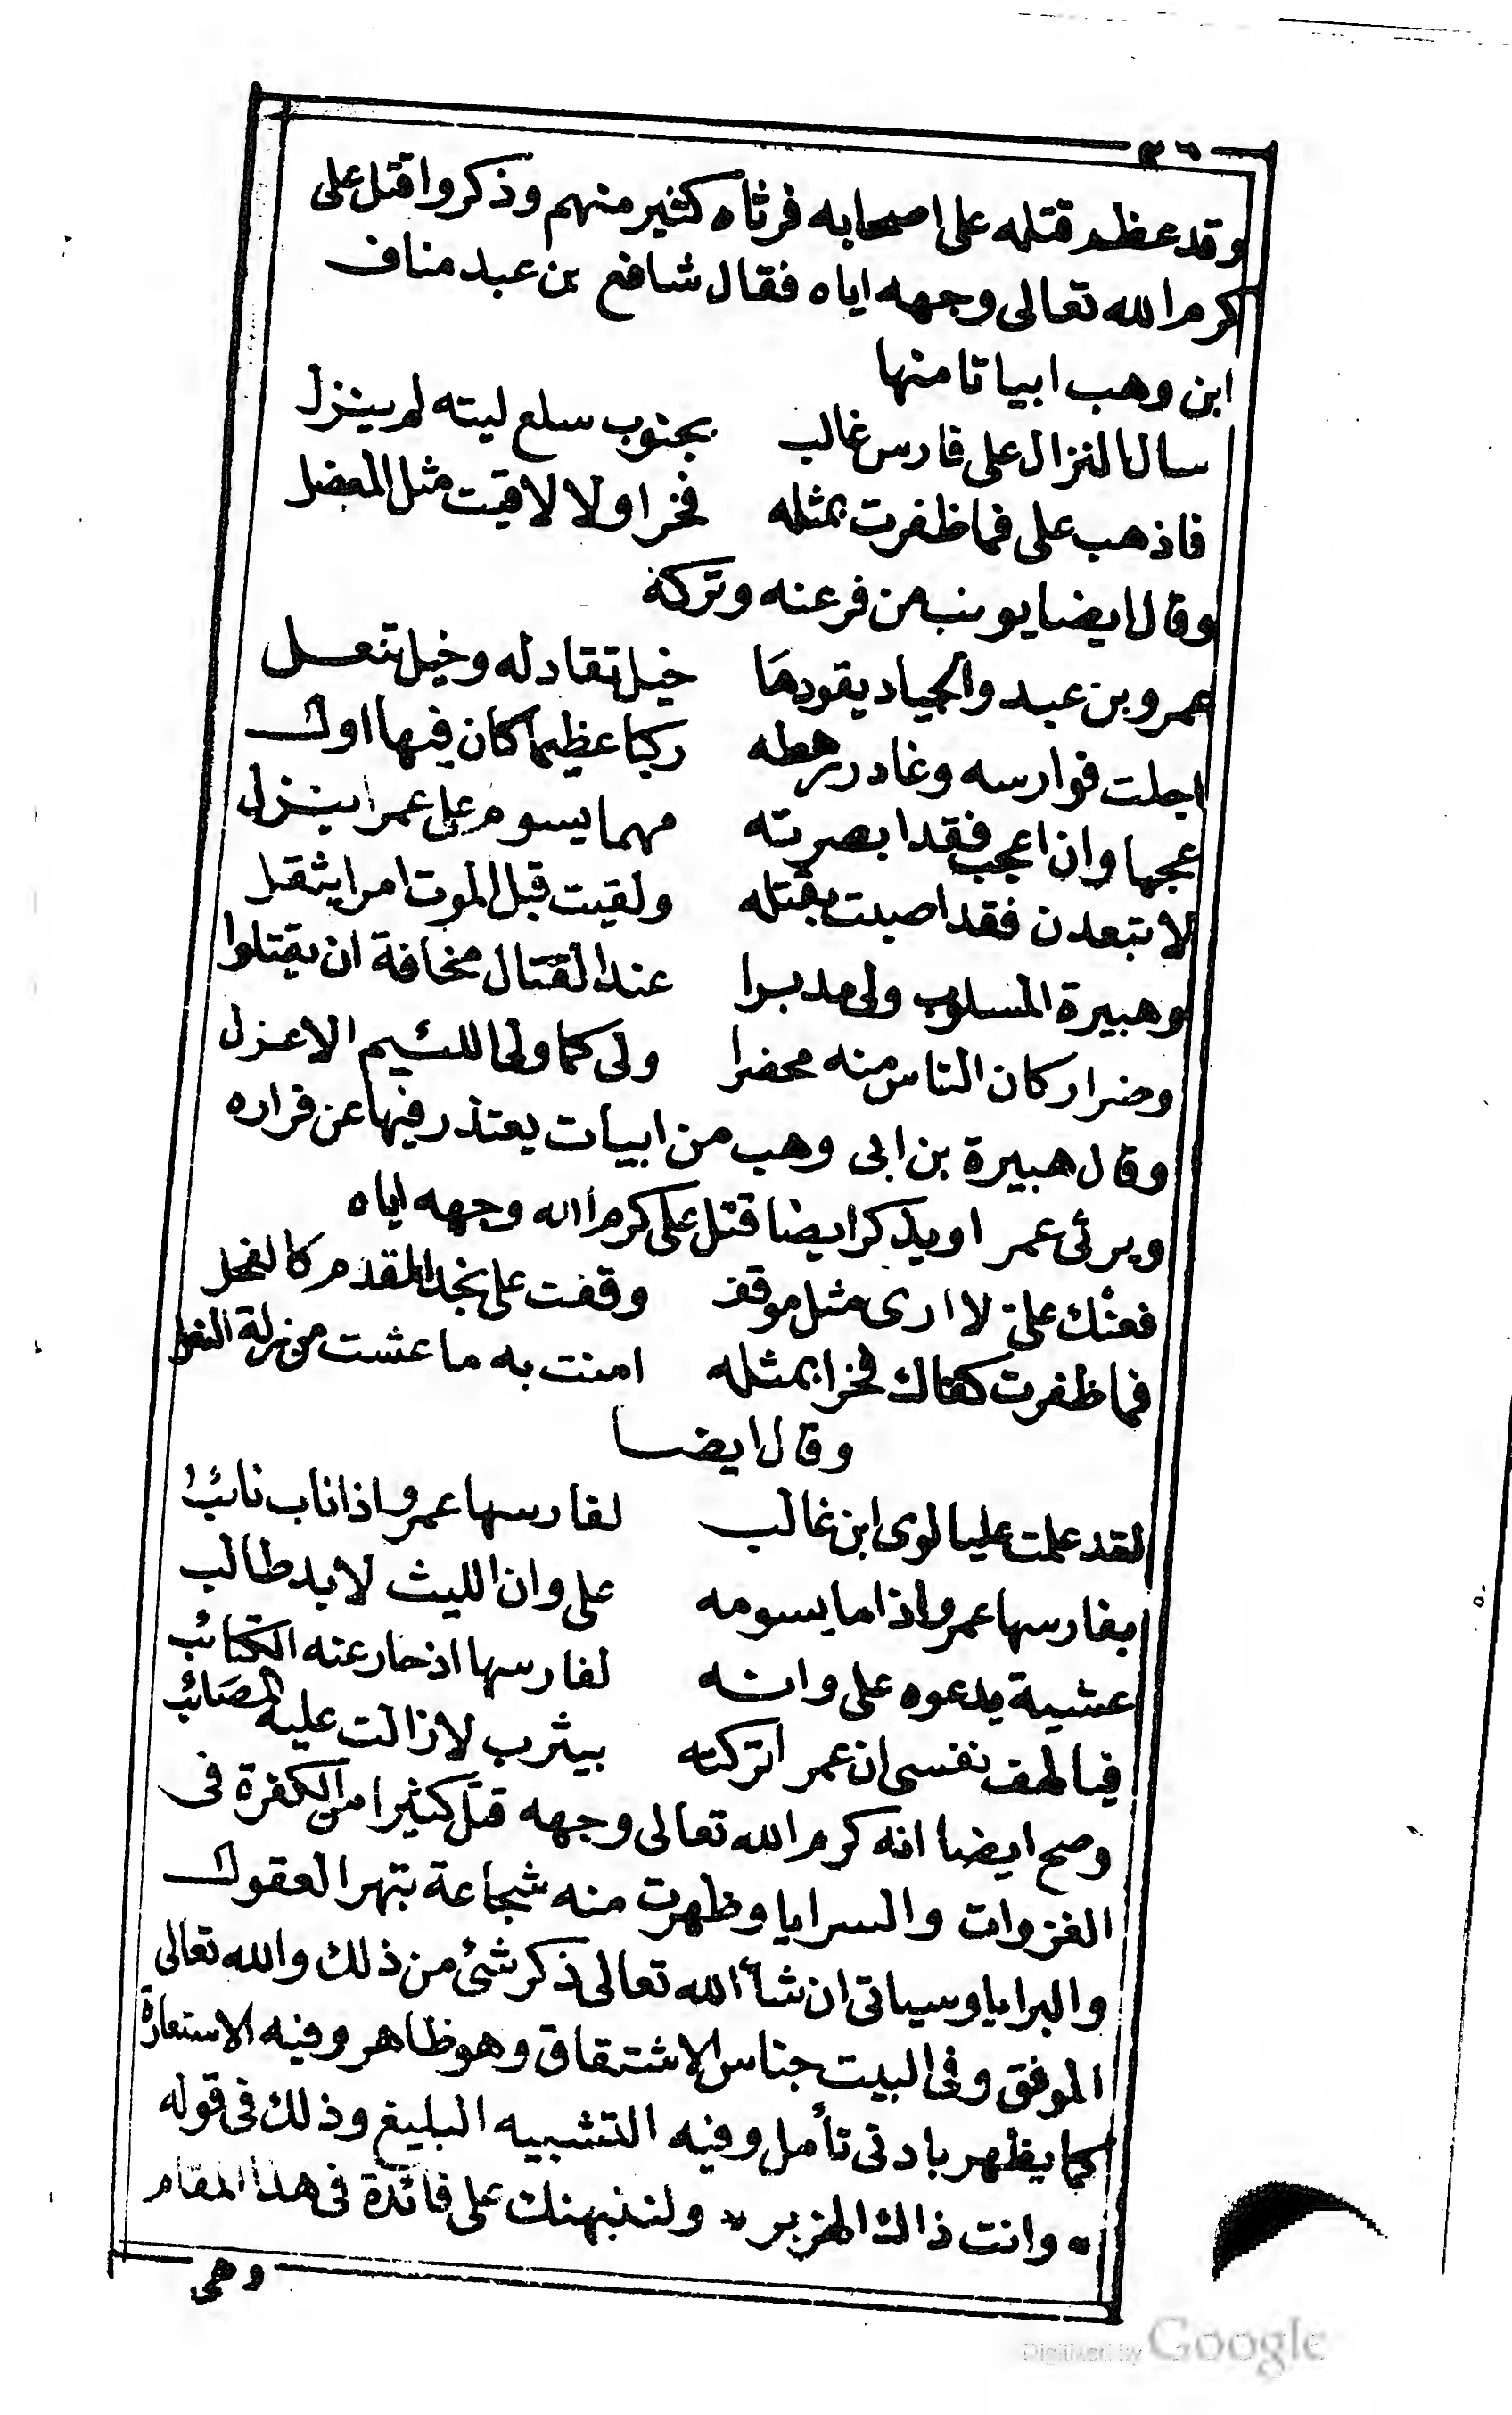 ٢٦
وقد عظم قتله على اصحابه فرثاه كثير منهم وذكروا قتل على
كرم الله تعالى وجهه اياه فقال شافع بن عبد مناف
ابن وهب ابياتا منها
سال النزال على فارس غالب بجنوب سلع ليته لم ينزل
فاذهب على فما ظفرت بمثله فخرا ولا لاقيت مثل المعضل
وقال ايضا يونب من فر عنه وتركه
عمرو بن عبد والجياد يقودها خيل تقاد له وخيل تنعل
اجلت فوارسه وغادر رهطه ركنا عظيما كان فيها اول
عجبا وان اعجب فقد ابصرته مهما يسوم على عمرا ينزل
لا تبعدن فقد اصبت بقتله ولقيت قبل الموت امرا يثقل
وهبيرة المسلوب ولى مدبرا عند القتال مخافة ان يقتلوا
وضرار كان الناس منه محضرا ولى كما ولى اللئيم الاعزل
وقال هبيرة بن ابى وهب من ابيات يعتذر فيها عن فراره
ويرثى عمرا ويذكر ايضا قتل على كرم الله وجهه اياه
فعنك على لا ارى مثل موقف وقفت على نجد المقدم كالفحل
فما ظفرت كفاك فخرا بمثله امنت به ما عشت من زلة النعل
وقال ايضا
لقد علمت عليا لوى ابن غالب لفارسها عمرو اذا ناب نائب
بفارسها عمرو اذا ما يسومه على وان الليث لا بد طالب
عشية يدعوه على وانه لفارسها اذ حار عنه الكتائب
فيا لهف نفسى ان عمرا تركته بيثرب لا زالت عليه المصائب
وصح ايضا انه كرم الله تعالى وجهه قتل كثيرا من الكفرة فى
الغزوات والسرايا وظهرت منه شجاعة تبهر العقول
والبرايا وسياتى ان شاء الله تعالى ذكر شئ من ذلك والله تعالى
الموفق وفى البيت جناس الاشتقاق وهو ظاهر وفيه الاستعارة
كما يظهر بادنى تأمل وفيه التشبيه البليغ وذلك فى قوله
* وانت ذاك الهزبر * ولننبهنك على فائدة فى هذا المقام
وهى
Digitized by Google